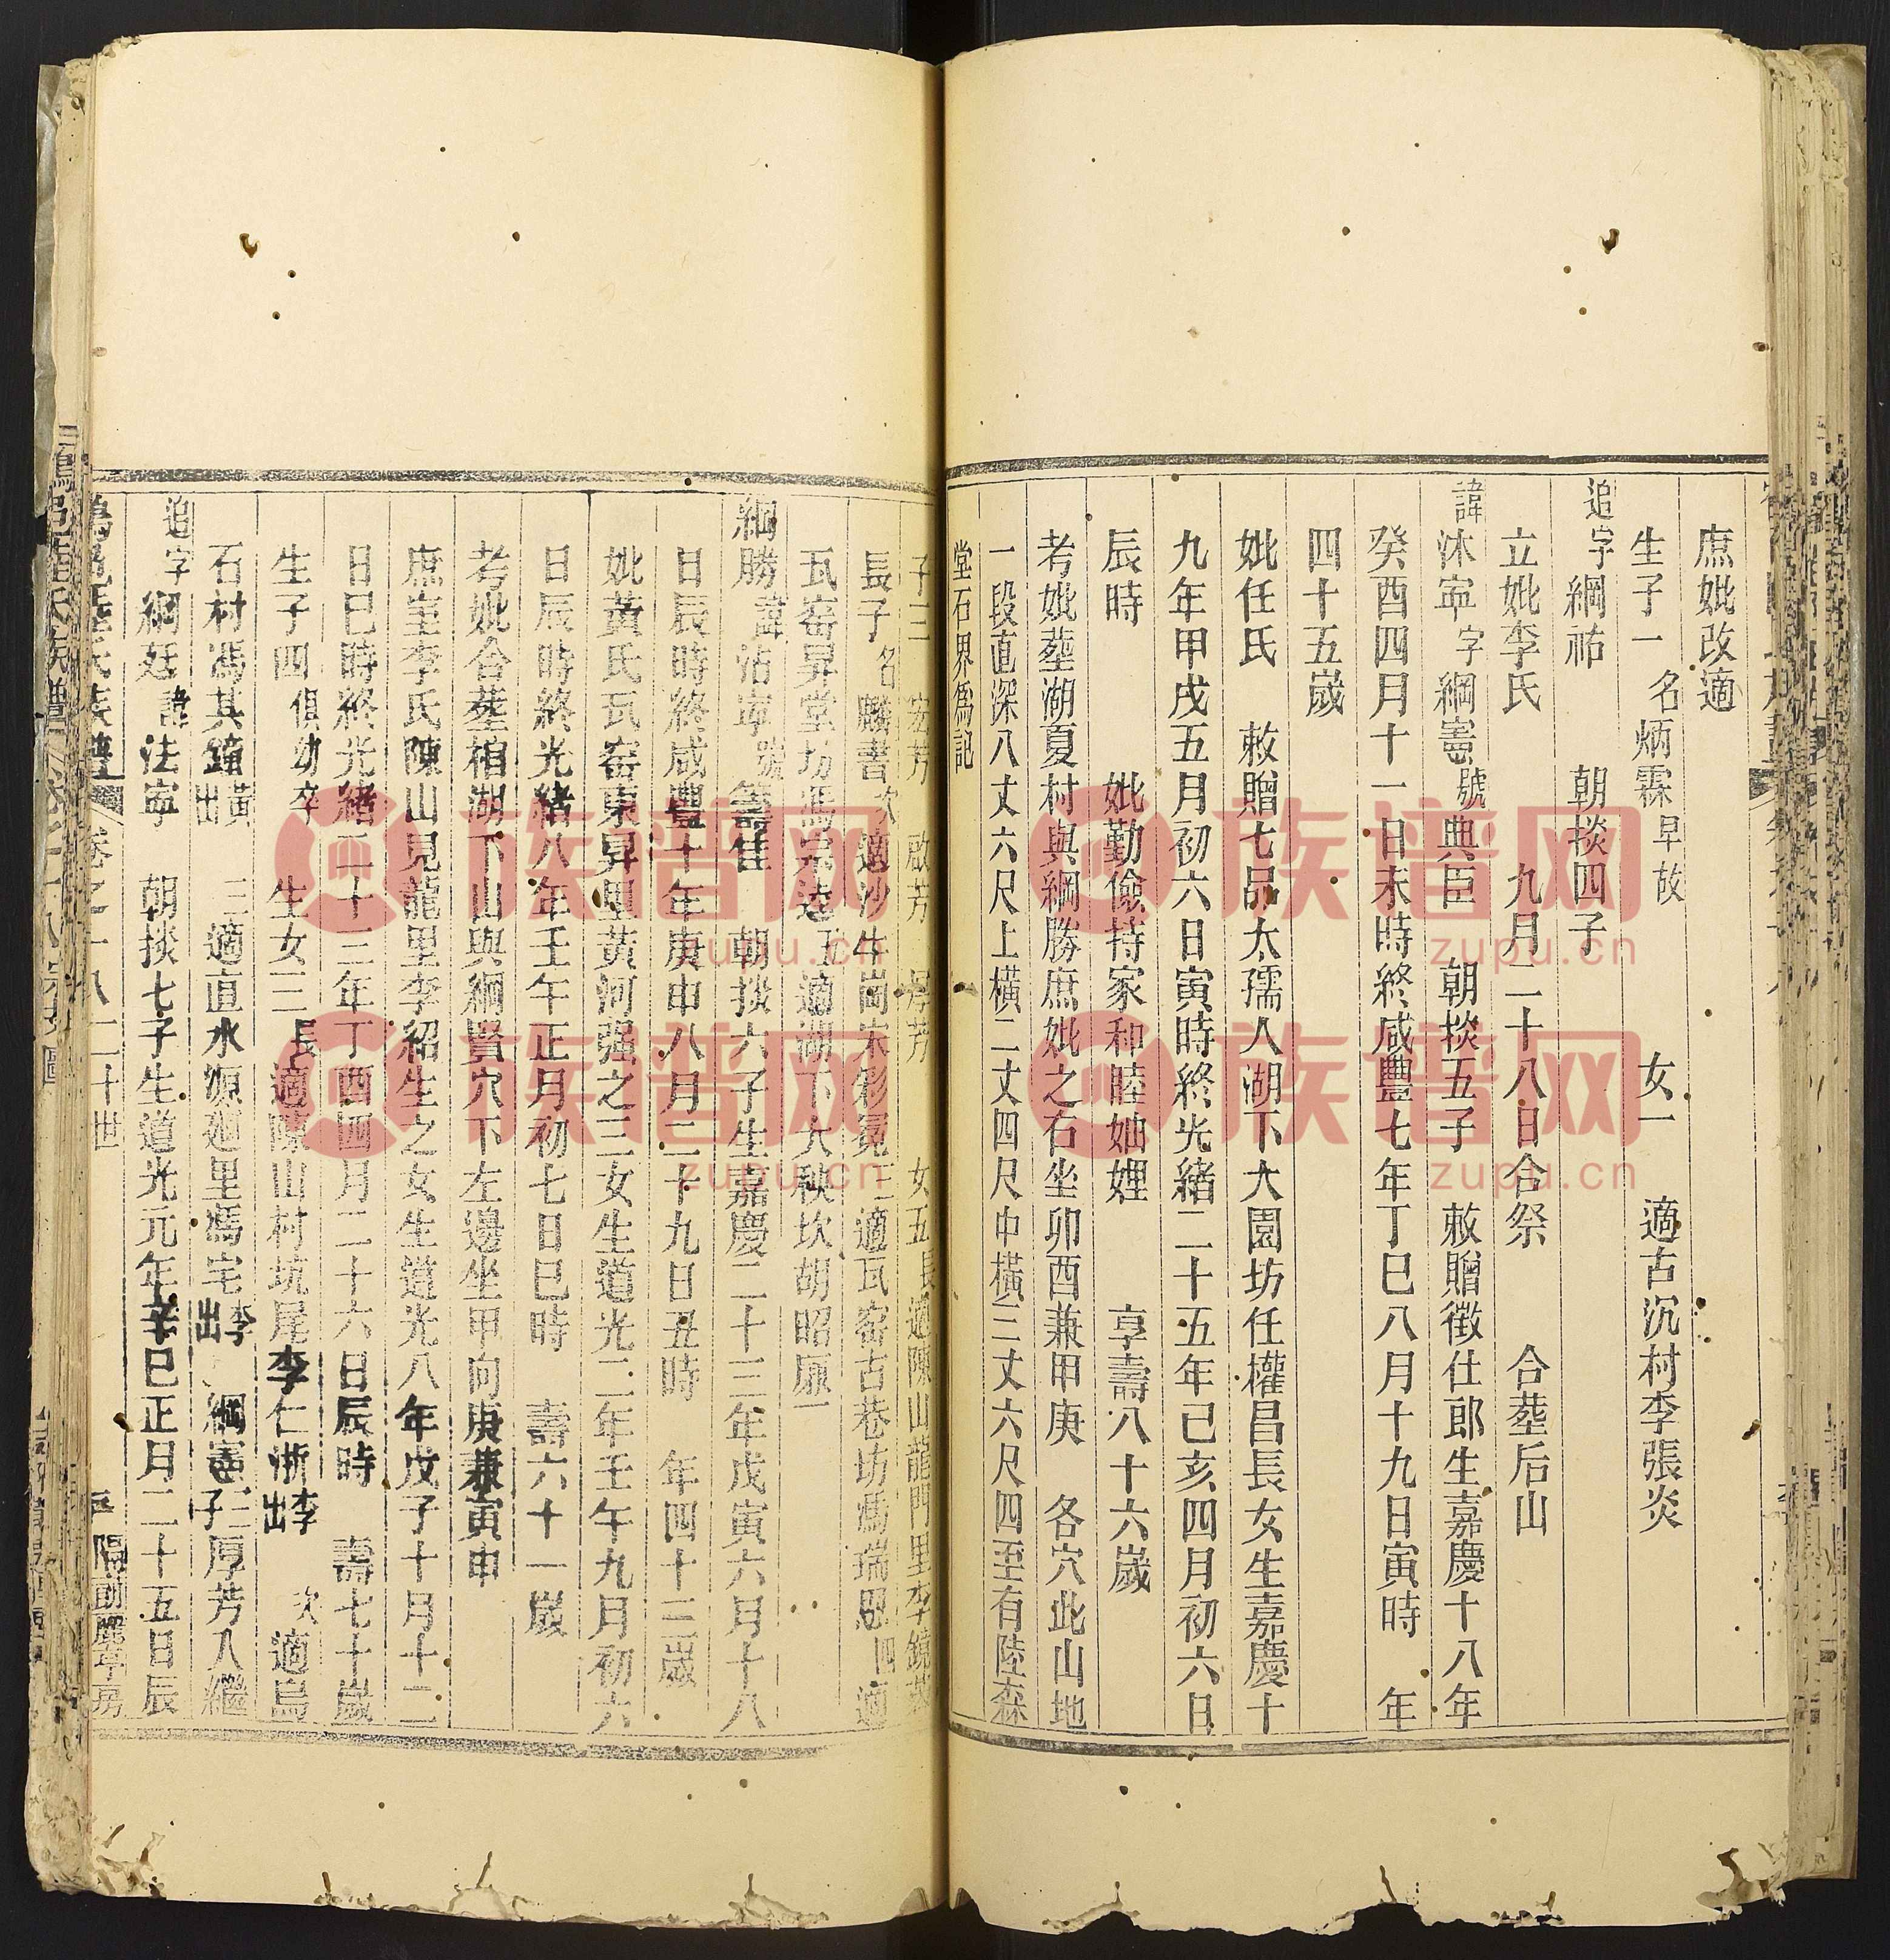 庶妣改適
生子一 名炳霖早故 女一 適古沉村李張炎
追字綱祐 朝掞四子
立妣李氏 九月二十八日合祭 合塟后山
諱沐寍字綱憲號典臣 朝掞五子 敕贈徵仕郎生嘉慶十八年
癸酉四月十一日未時終咸豐七年丁巳八月十九日寅時 年
四十五嵗
妣任氏 敕贈七品太孺人湖下大園坊任權昌長女生嘉慶十
九年甲戌五月初六日寅時終光緒二十五年己亥四月初六日
辰時 妣勤儉持家和睦妯娌 享壽八十六嵗
考妣塟湖夏村與綱勝庶妣之右坐卯酉兼甲庚 各穴此山地
一段直深八丈六尺上橫二丈四尺中橫三丈六尺四至有陸森
堂石界爲記
子三 宏芳 啟芳 厚芳 女五長適陳山龍門里李鏡
長子名麟書次適沙牛崗宋彩冕三適瓦窑古巷坊馮瑞恩四適
瓦窑昇堂坊馮宗逵五適湖下大秧坎胡昭
綱勝諱沾寍號籌佳 朝掞六子生嘉慶二十三年戊寅六月十八
日辰時終咸豐十年庚申八月二十九日丑時 年四十三嵗
妣黃氏瓦窑東昇里黃河强之三女生道光二年壬午九月初六
日辰時終光緒八年壬午正月初七日巳時 壽六十一嵗
考妣合塟相湖下山與綱賢穴下左邊坐甲向庚兼寅申
庶室李氏陳山見龍里李紹生之女生道光八年戊子十月十二
日巳時終光緒二十三年丁酉四月二十六日辰時 壽七十嵗
生子四俱幼卒 生女三長適陳山村坑尾李仁浙李出 次適烏
石村馮其鐘黃出 三適直水源廻里馮宅李出 綱憲三子厚芳入繼
追字綱廷諱法寍 朝掞七子生道光元年辛巳正月二十五日辰
卷之十八 二十世